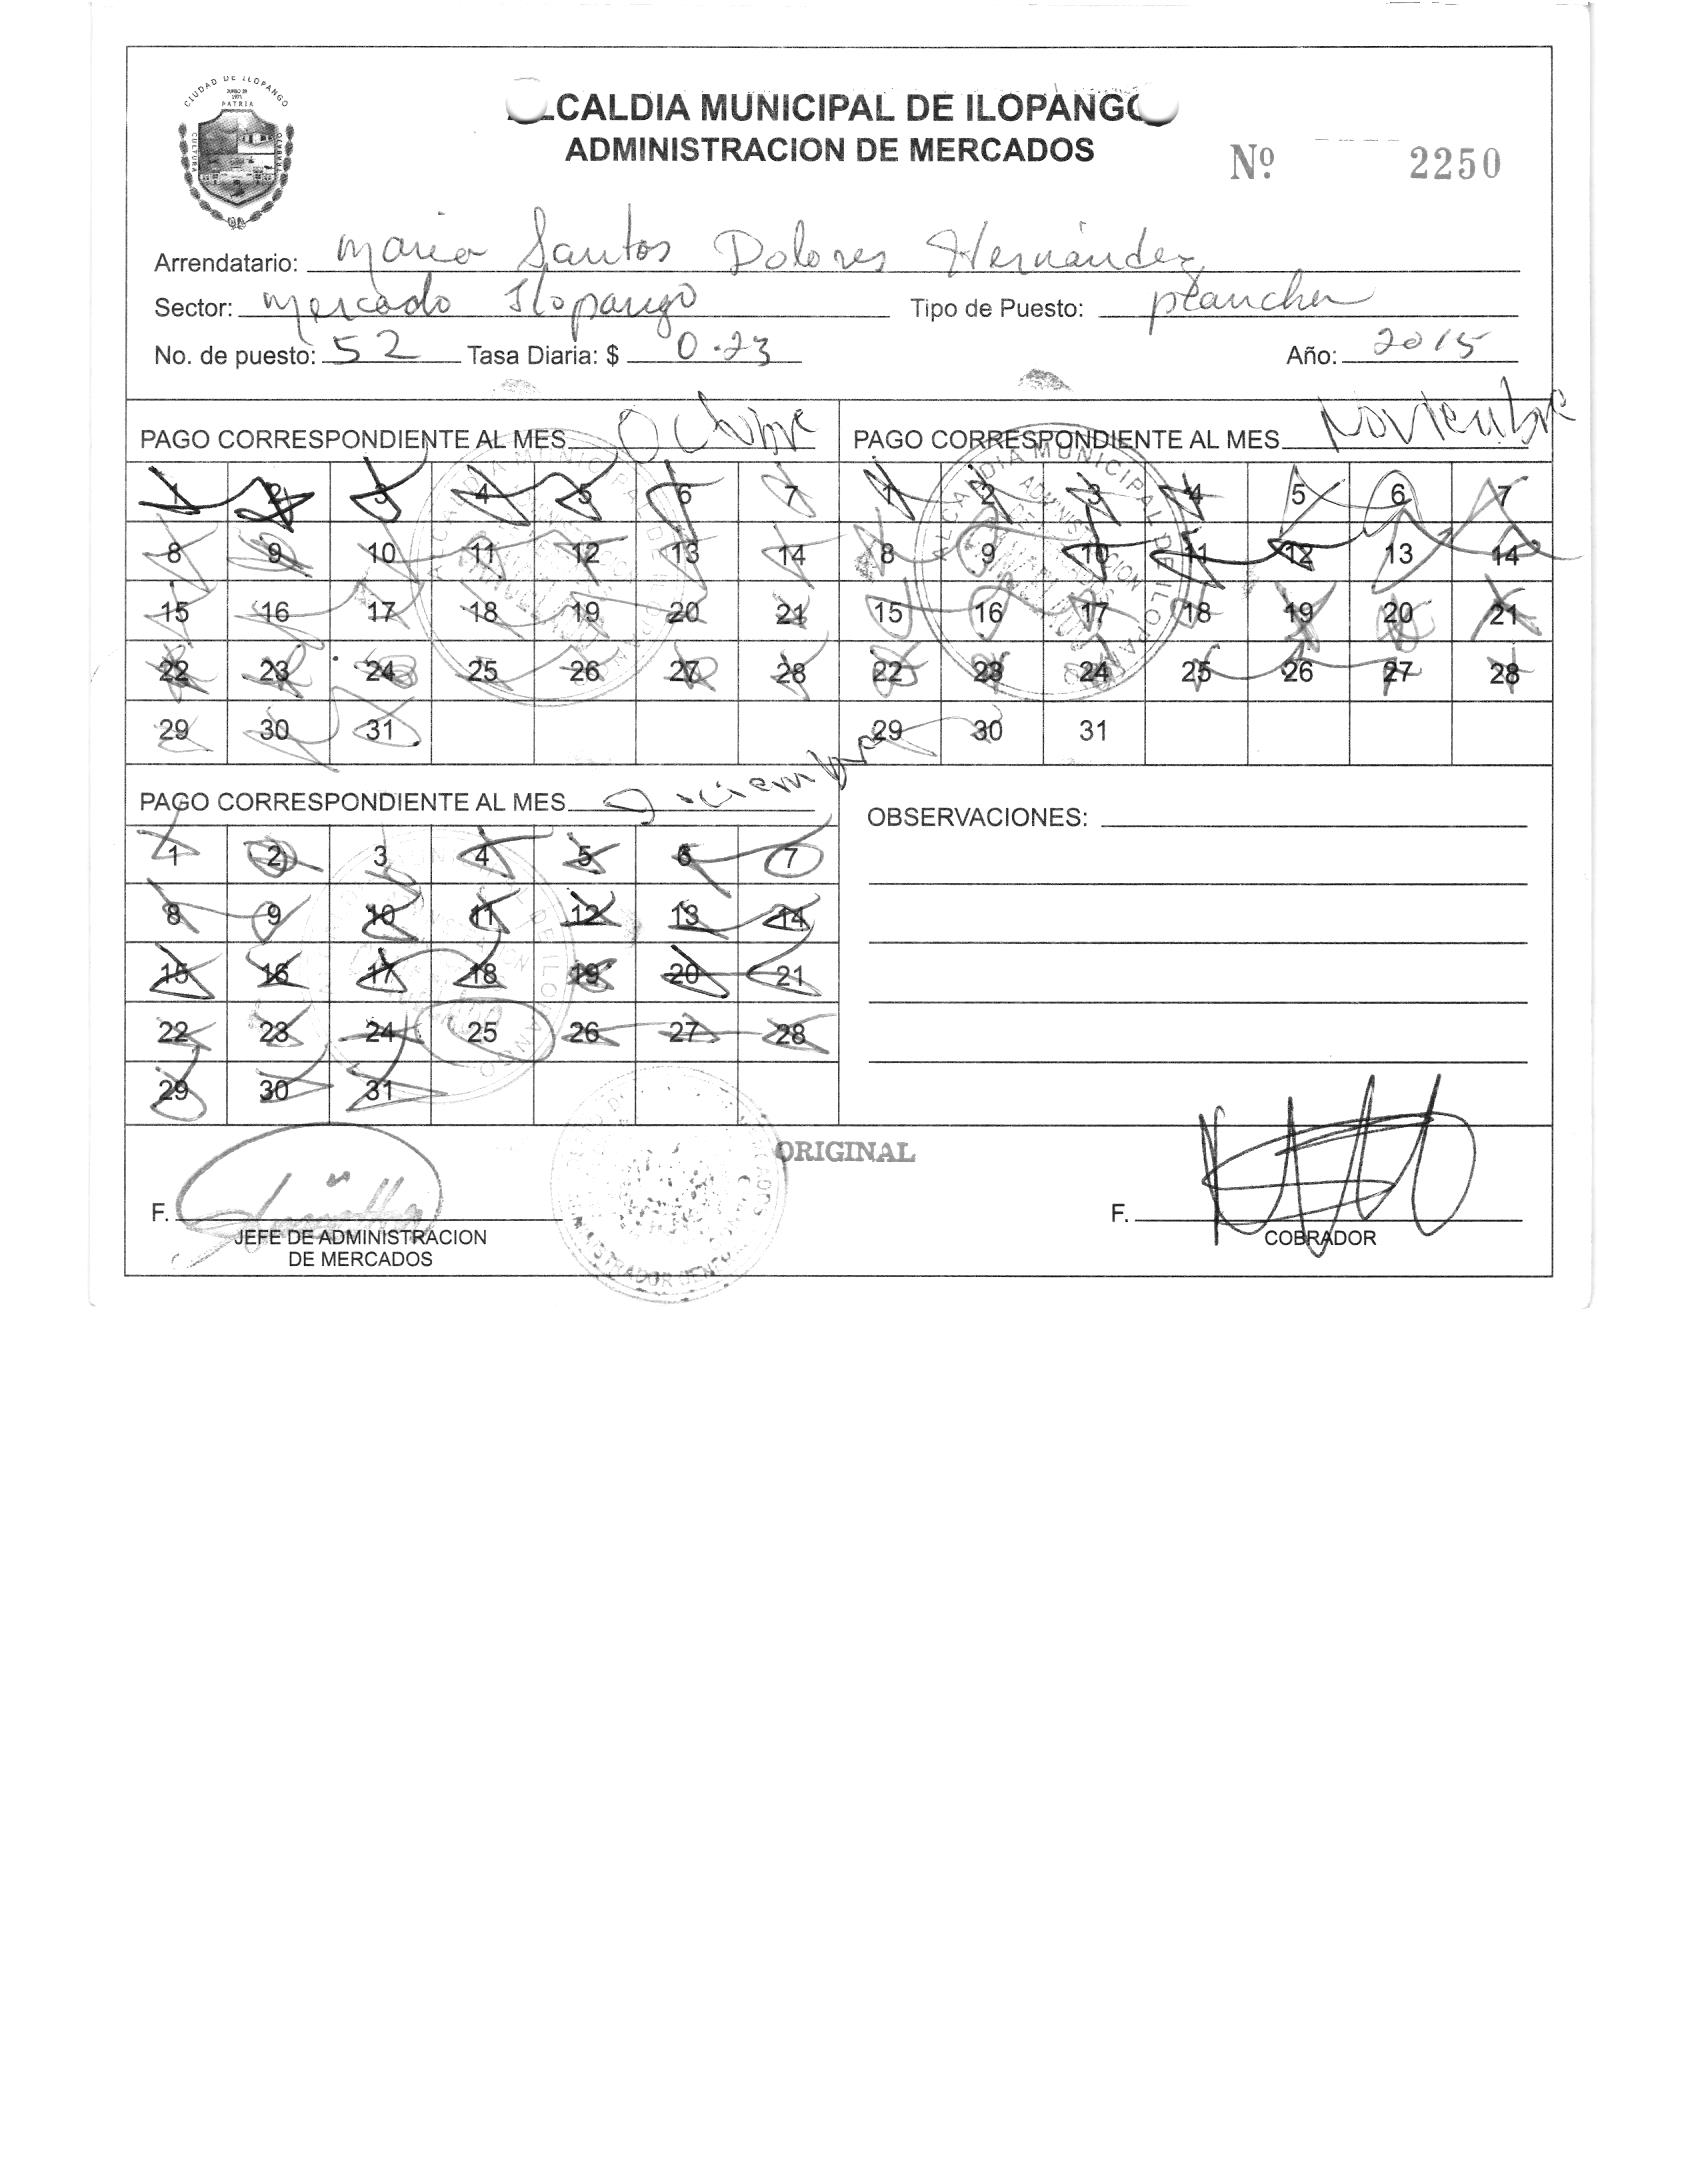 CIUDAD DE ILOPANGO
PATRIA
CULTURA
ALCALDIA MUNICIPAL DE ILOPANGO
ADMINISTRACION DE MERCADOS
Nº 2250
Arrendatario: Maria Santos Dolores Hernández
Sector: Mercado Ilopango Tipo de Puesto: plancha
No. de puesto: 52 Tasa Diaria: $ 0.23 Año: 2015
PAGO CORRESPONDIENTE AL MES Octubre
1 2 3 4 5 6 7
8 9 10 11 12 13 14
15 16 17 18 19 20 21
22 23 24 25 26 27 28
29 30 31
PAGO CORRESPONDIENTE AL MES Noviembre
1 2 3 4 5 6 7
8 9 10 11 12 13 14
15 16 17 18 19 20 21
22 23 24 25 26 27 28
29 30 31
PAGO CORRESPONDIENTE AL MES Diciembre
1 2 3 4 5 6 7
8 9 10 11 12 13 14
15 16 17 18 19 20 21
22 23 24 25 26 27 28
29 30 31
OBSERVACIONES:
ORIGINAL
F.
JEFE DE ADMINISTRACION
DE MERCADOS
F.
COBRADOR